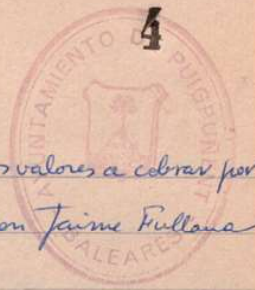 4
AYUNTAMIENTO DE PUIGPUNYENT
BALEARES
svalores a cobrar por
on Jaime Fullana